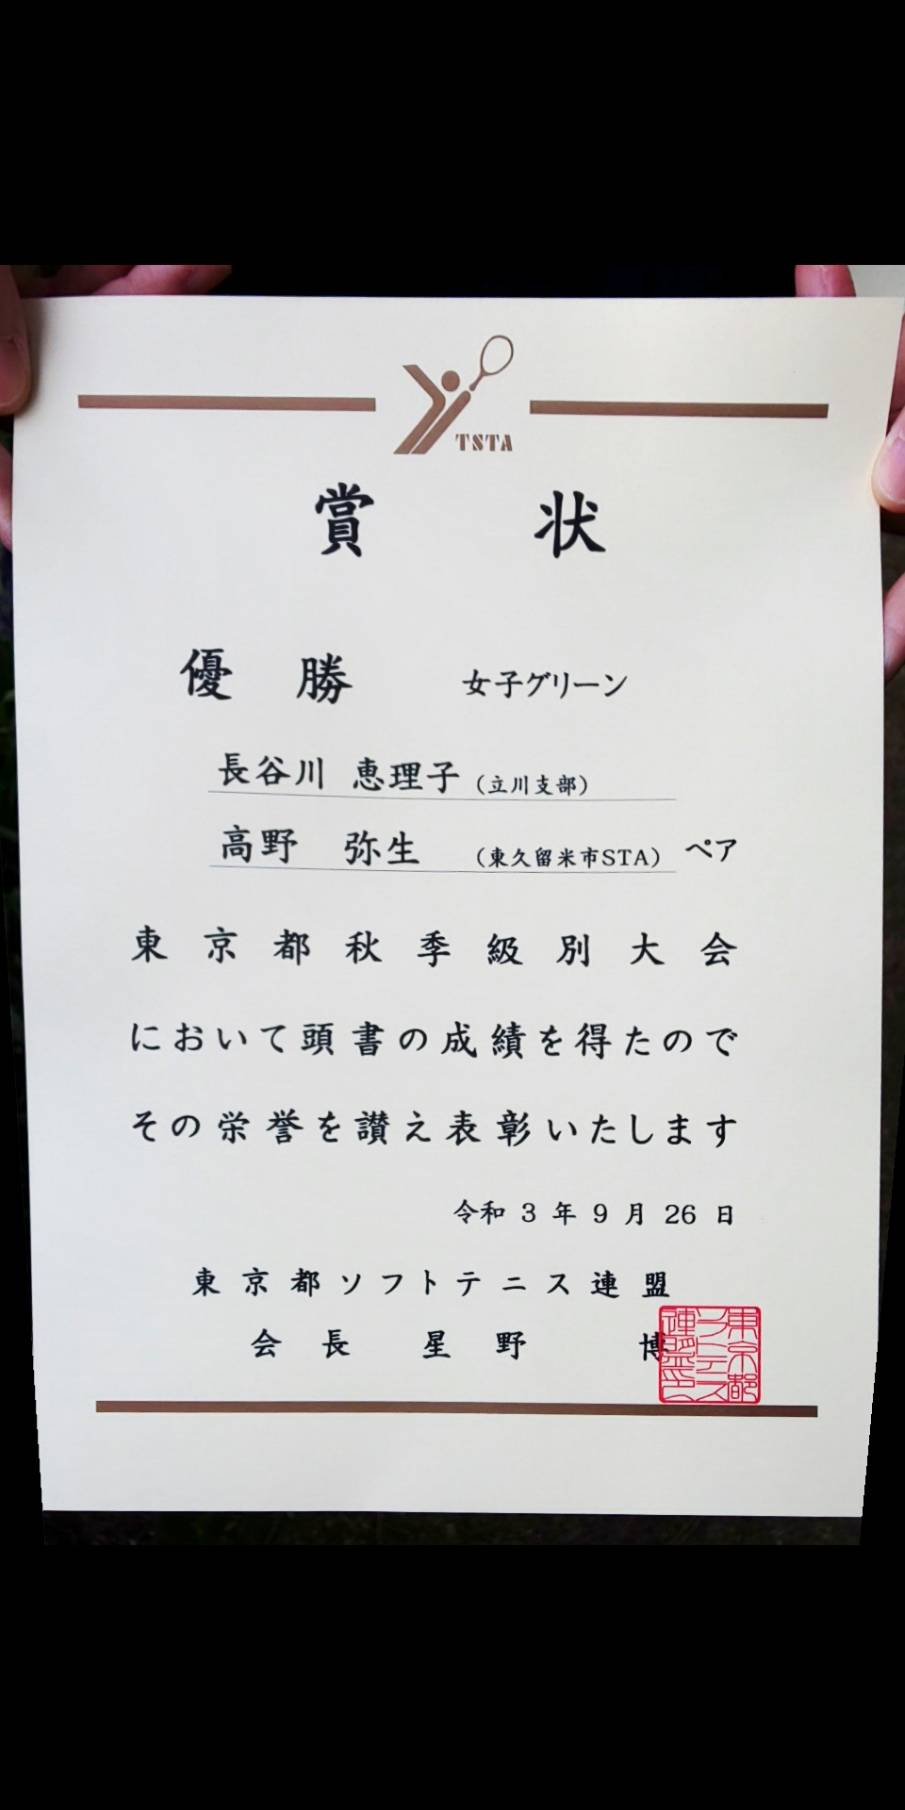 TSTA
賞状
優勝 女子グリーン
長谷川 恵理子 (立川支部)
高野 弥生 (東久留米市STA) ペア
東京都秋季級別大会
において頭書の成績を得たので
その栄誉を讃え表彰いたします
令和 3 年 9 月 26 日
東京都ソフトテニス連盟
会長 星野 博
東京都
ソフトテニス
連盟印